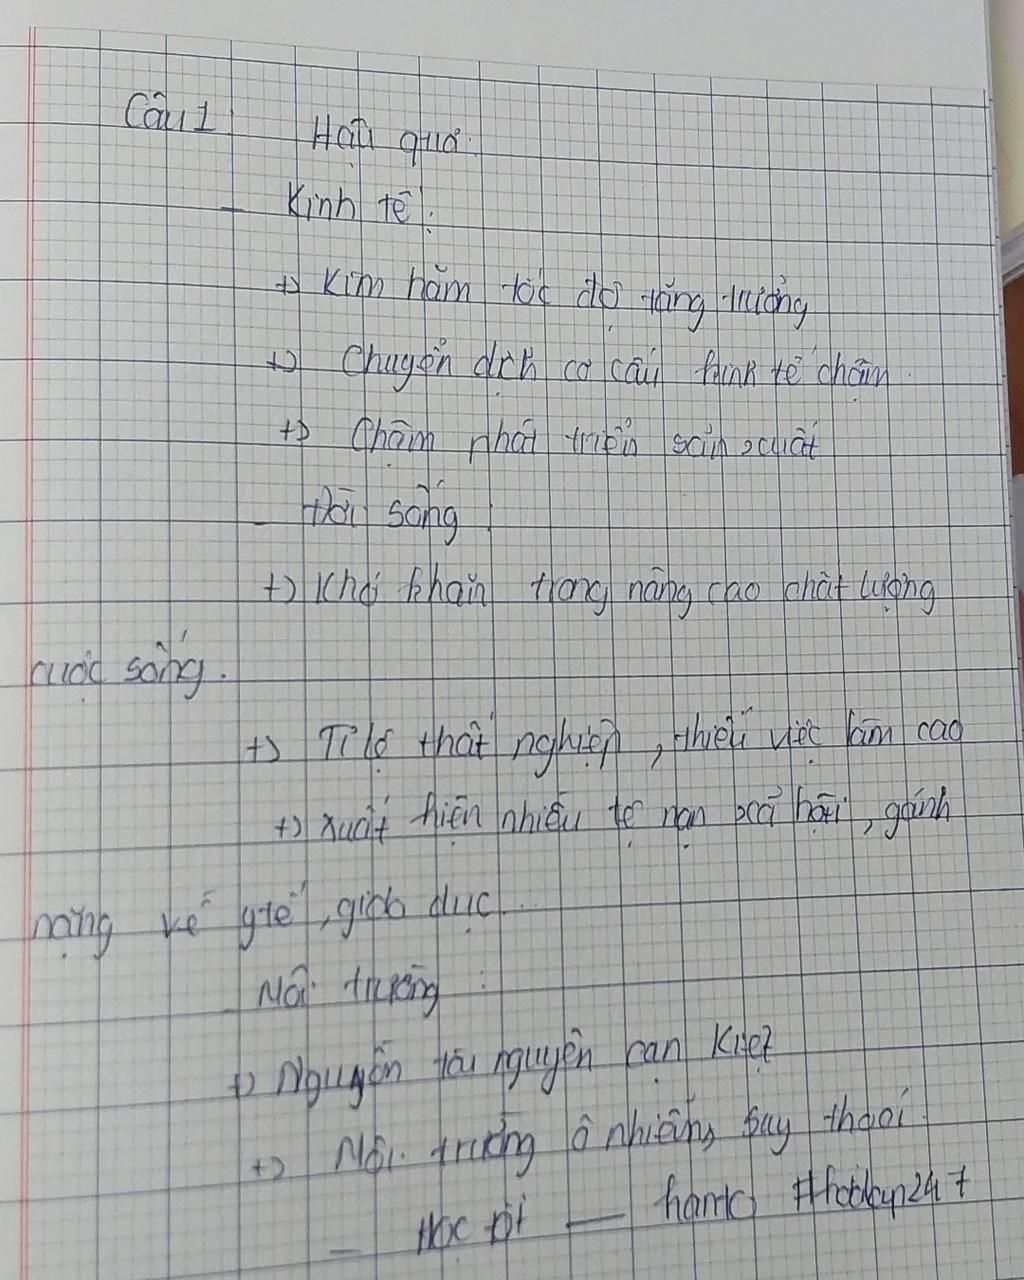 Câu 1: Hậu quả:
- Kinh tế:
+) Kìm hãm tốc độ tăng trưởng
+) Chuyển dịch cơ cấu kinh tế chậm.
+) Chậm phát triển sản xuất
- Đời sống
+) Khó khăn trong nâng cao chất lượng
cuộc sống.
+) Tỉ lệ thất nghiệp, thiếu việc làm cao
+) Xuất hiện nhiều tệ nạn xã hội, gánh
nặng về y tế, giáo dục...
- Môi trường:
+) Nguồn tài nguyên cạn kiệt
+) Môi trường ô nhiễm, suy thoái.
- Học tốt -